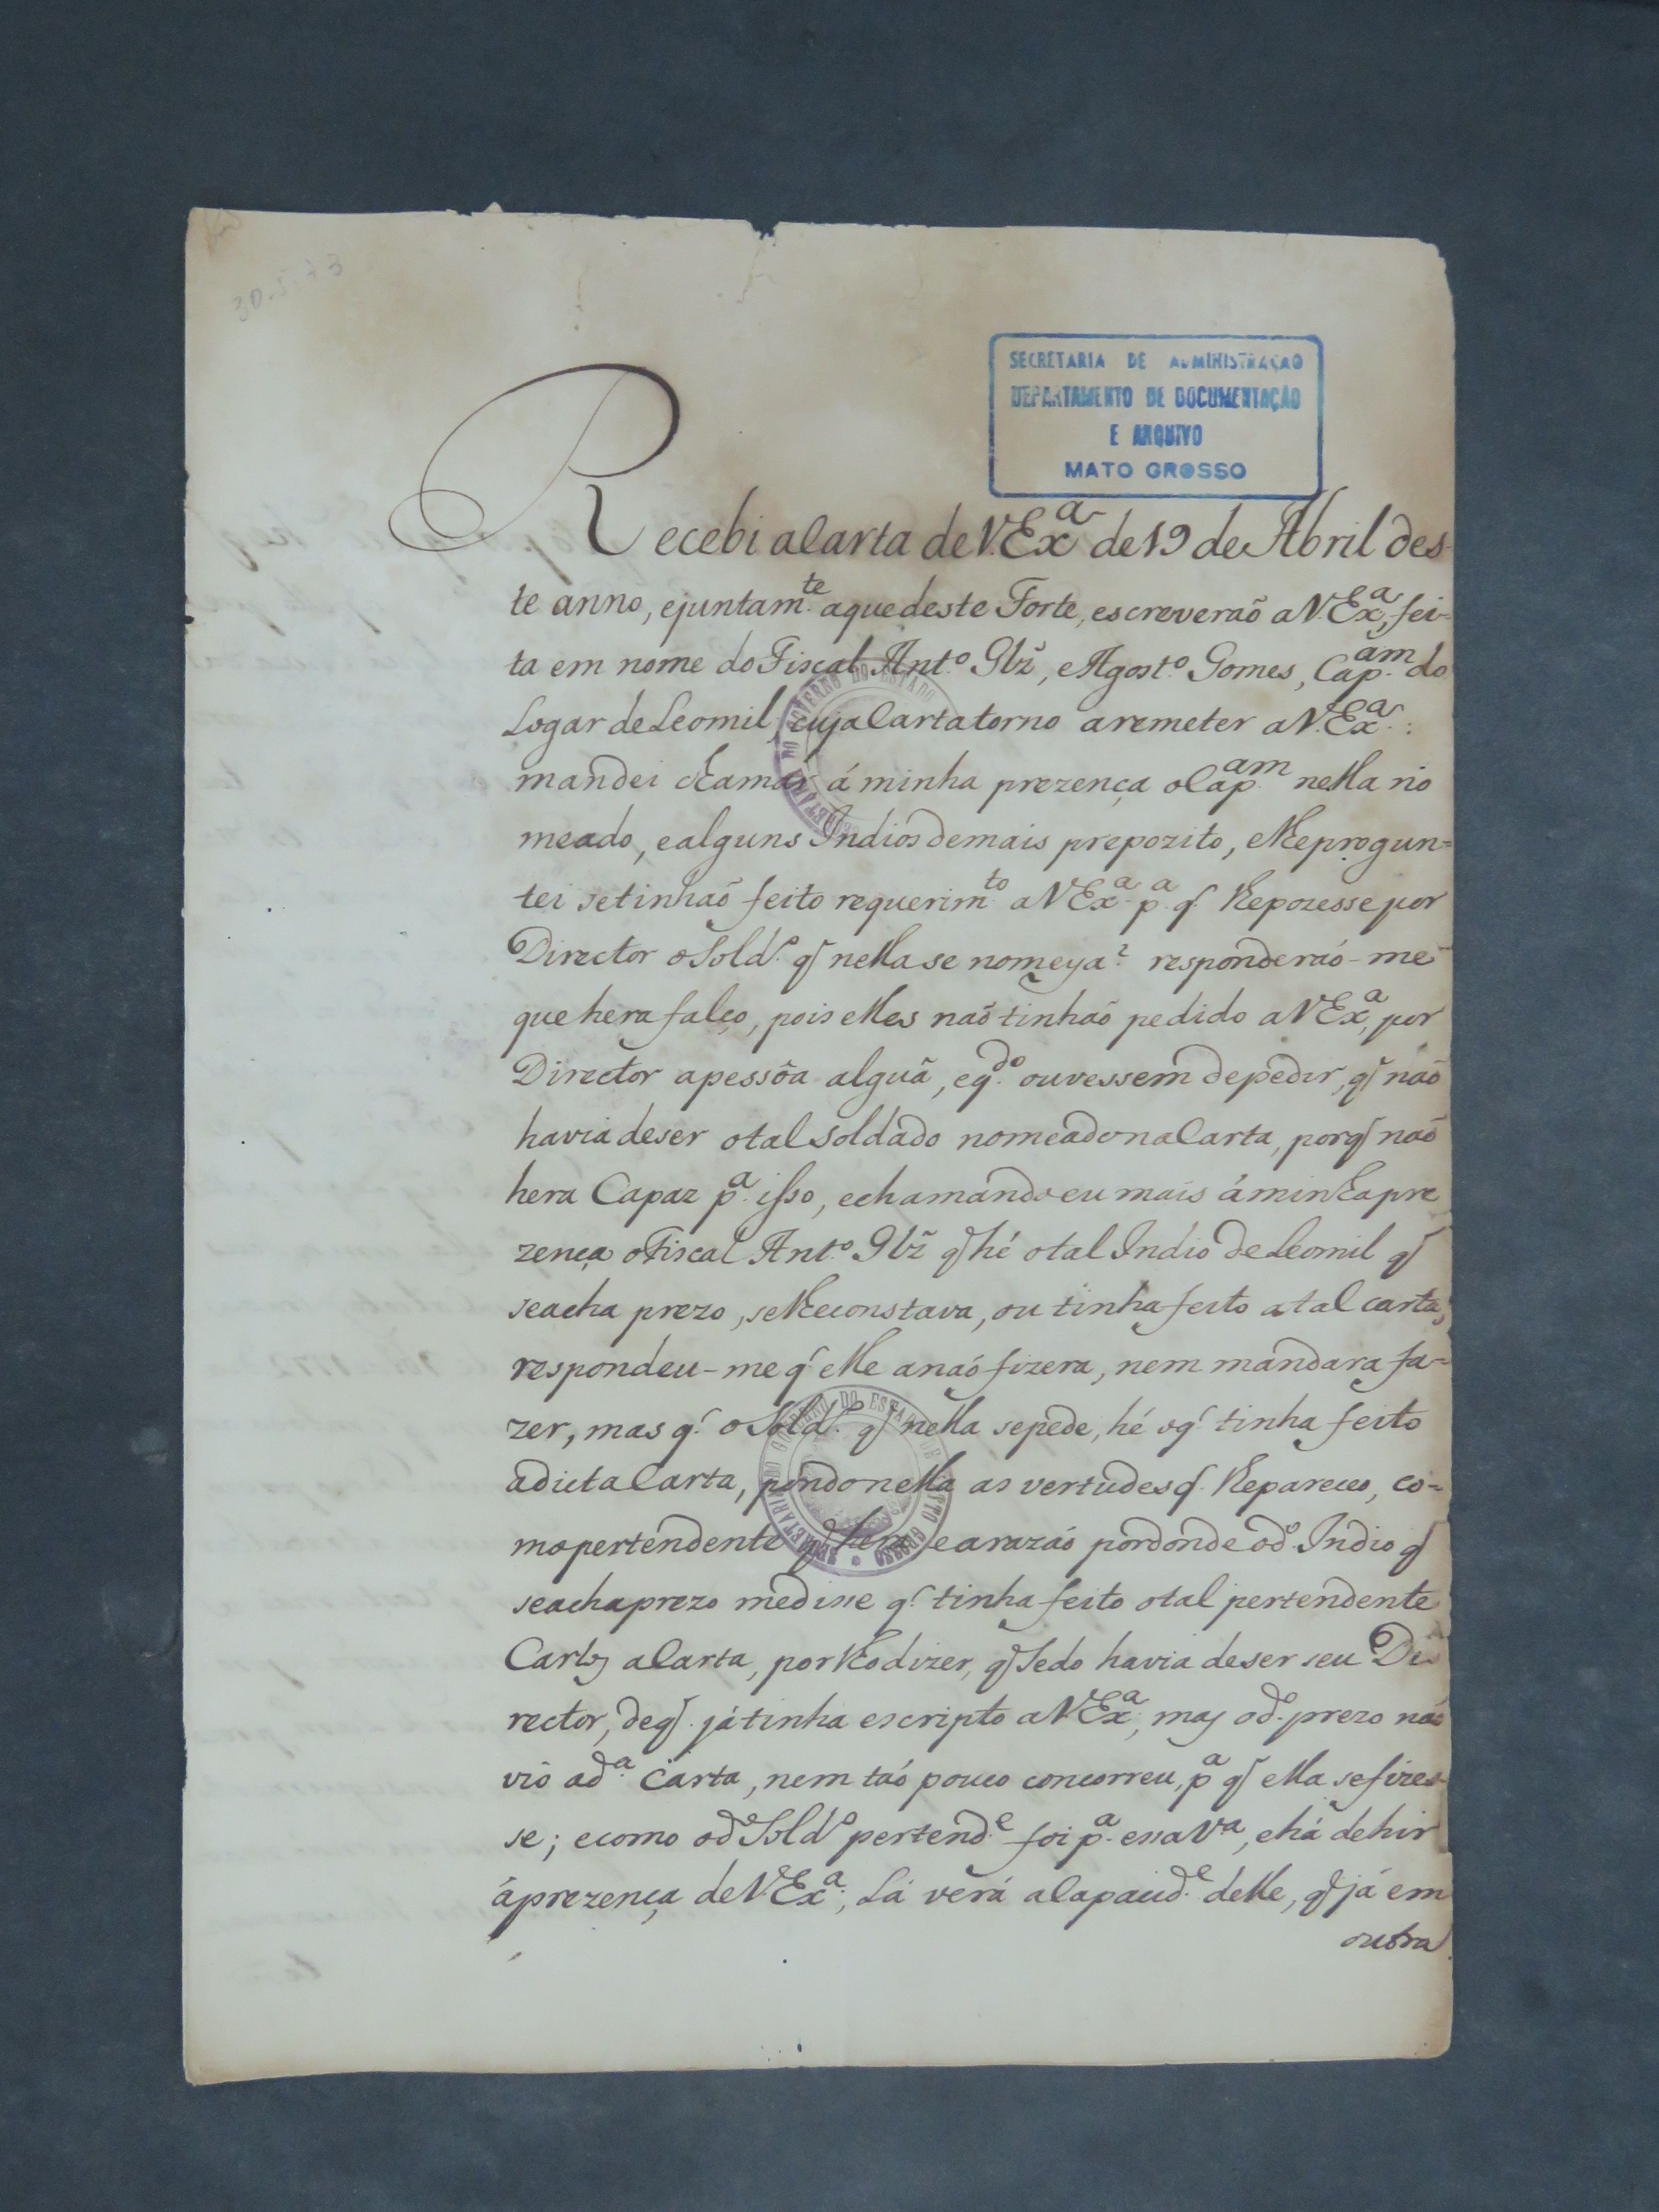 30.5.73
SECRETARIA DE ADMINISTRAÇÃO
DEPARTAMENTO DE DOCUMENTAÇÃO
E ARQUIVO
MATO GROSSO
Recebi a Carta de V.Ex.ª de 19 de Abril des-
te anno, e juntam.te a que deste Forte, escreveraõ a V.Ex.ª, fei-
ta em nome do Fiscal Ant.º Glz̃, e Agost.º Gomes, Cap.am do
Logar de Leomil, cuja Carta torno a remeter a V.Ex.ª:
mandei chamar á minha prezença o Cap.am nella no
meado, e alguns Indios de mais prepozito, e lhe progun=
tei se tinhaõ feito requerim.to a V.Ex.ª p.ª q̃ lhe pozesse por
Director o Sold.º q̃ nella se nomeya? responderaõ-me
que hera falço, pois elles naõ tinhaõ pedido a V.Ex.ª, por
Director a pessôa algũa, e q.do ouvessem de pedir, q̃ naõ
havia de ser o tal Soldado nomeado na Carta, porq̃ naõ
hera Capaz p.ª isso, e chamando eu mais á minha pre
zença o Fiscal Ant.º Glz̃ q̃ hé o tal Indio de Leomil q̃
se acha prezo, se lhe constava, ou tinha feito a tal carta,
respondeu-me q̃ elle a naõ fizera, nem mandara fa=
zer, mas q̃ o Sold.º q̃ nella se pede, hé o q̃ tinha feito
a dicta Carta, pondo nella as vertudes q̃ lhe pareceo, co=
mo pertendente q̃ hera e a razaõ por donde o d.º Indio q̃
se acha prezo me disse q̃ tinha feito o tal pertendente
Carlos a Carta, por lho dizer, q̃ Sedo havia de ser seu Di=
rector, de q̃ já tinha escripto a V.Ex.ª, mas o d.º prezo naõ
vio a d.ª Carta, nem taõ pouco concorreu, p.ª q̃ ella se fizes-
se; e como o d.º Sold.º pertend.e foi p.ª essa V.ª, e há de hir
á prezença de V.Ex.ª, Lá verá a Capacid.e delle, q̃ já em
outra
SECRETARIA DO GOVERNO DO ESTADO
SECRETARIA DO GOVERNO DO ESTADO DE MATTO GROSSO